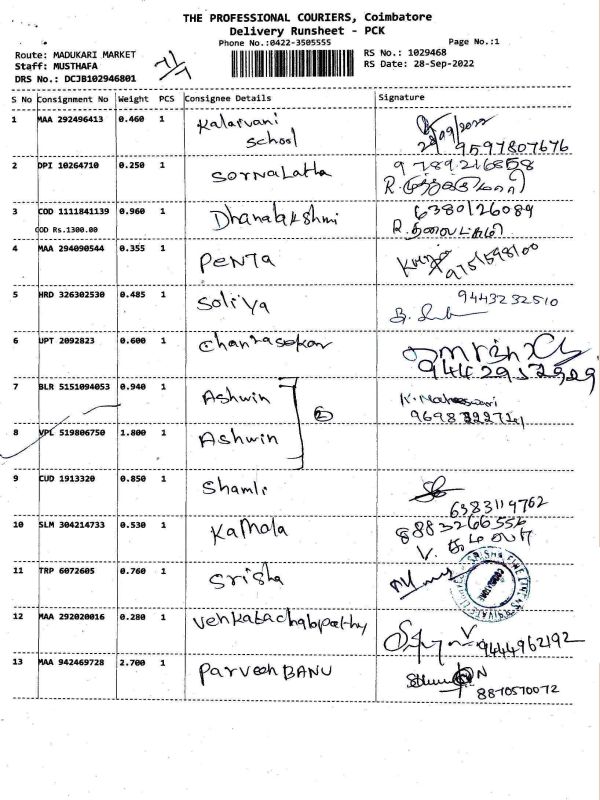 THE PROFESSIONAL COURIERS, Coimbatore
Delivery Runsheet - PCK
Phone No.:0422-3505555 Page No.:1
Route: MADUKARI MARKET RS No.: 1029468
Staff: MUSTHAFA RS Date: 28-Sep-2022
DRS No.: DCJB102946801
S No Consignment No Weight PCS Consignee Details Signature
1 MAA 292496413 0.460 1 Kalaivani
School 28/09/2022
9597807676
2 DPI 10264710 0.250 1 Sornalatha 9789216858
3 COD 1111841139 0.960 1 Dhanalakshmi 6380126089
COD Rs.1300.00
4 MAA 294090544 0.355 1 Penta
5 HRD 326302530 0.485 1 Soliya 9443232510
6 UPT 2092823 0.600 1 Chanrasekar
9442952929
7 BLR 5151094053 0.940 1 Ashwin K. Maheswari
2
8 VPL 519806750 1.800 1 Ashwin
9 CUD 1913320 0.850 1 Shamli
6383119762
10 SLM 304214733 0.530 1 Kamala 8883266556
11 TRP 6072605 0.760 1 Srisha
12 MAA 292020016 0.280 1 Venkatachalapathy
9444962192
13 MAA 942469728 2.700 1 Parveen BANU
8870570072